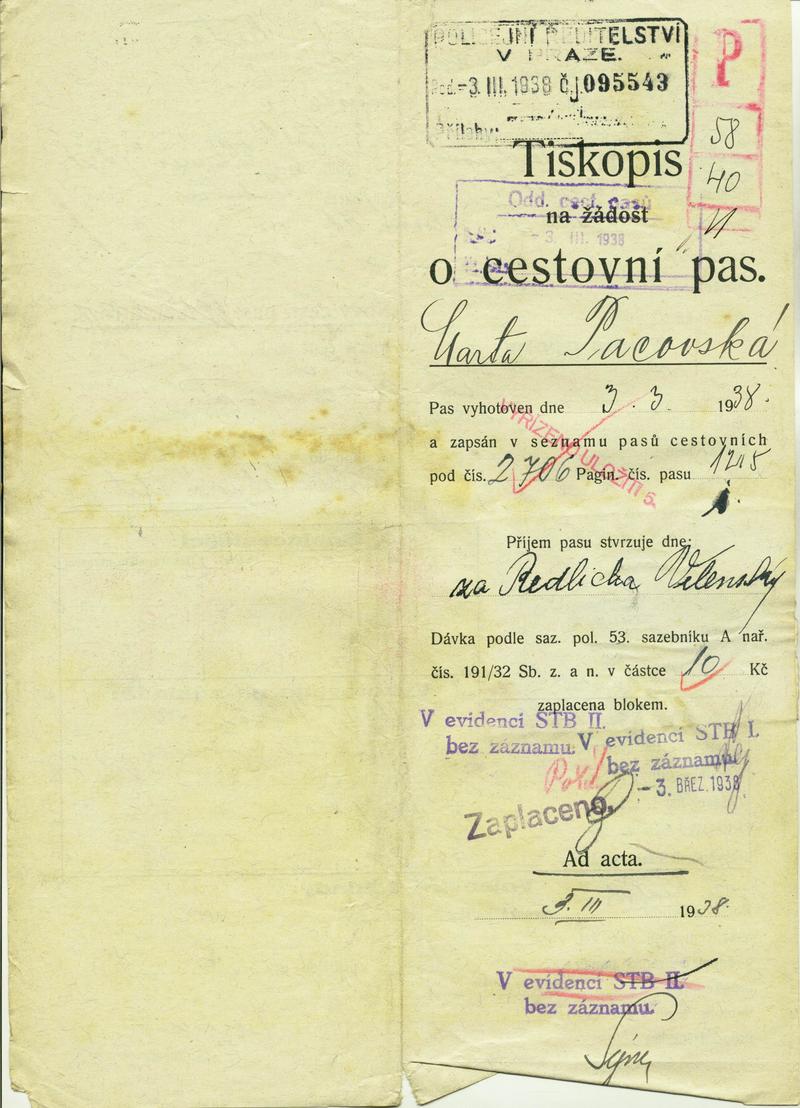 POLICEJNÍ ŘEDITELSTVÍ
V PRAZE.
Pod. -3. III. 1938 Č.j. 095543
Přílahy:
P
58
40
Tiskopis
Odd. cest. pasů
na žádost
3. III. 1938
o cestovní pas.
Marta Pacovská
Pas vyhotoven dne 3. 3. 1938.
a zapsán v seznamu pasů cestovních
VYŘÍZENO ULOŽITI 5.
pod čís. 2706 Pagin. čís. pasu 1215
Příjem pasu stvrzuje dne:
za Redlicha Velenský
Dávka podle saz. pol. 53. sazebníku A nař.
čís. 191/32 Sb. z. a n. v částce 10 Kč
zaplacena blokem.
V evidenci STB II.
bez záznamu.
V evidenci STB I.
bez záznamu
-3. BŘEZ. 1938
Zaplaceno.
Ad acta.
3. III 1938.
V evidenci STB II.
bez záznamu.